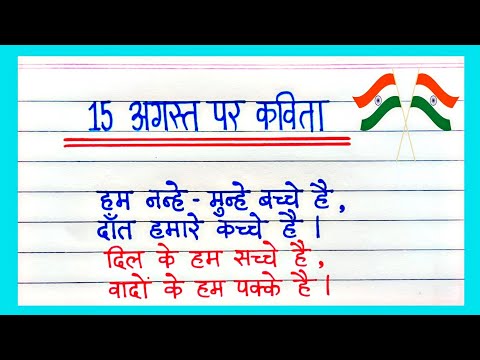 15 अगस्त पर कविता
हम नन्हे - मुन्हे बच्चे है ,
दाँत हमारे कच्चे है ।
दिल के हम सच्चे है ,
वादों के हम पक्के है ।